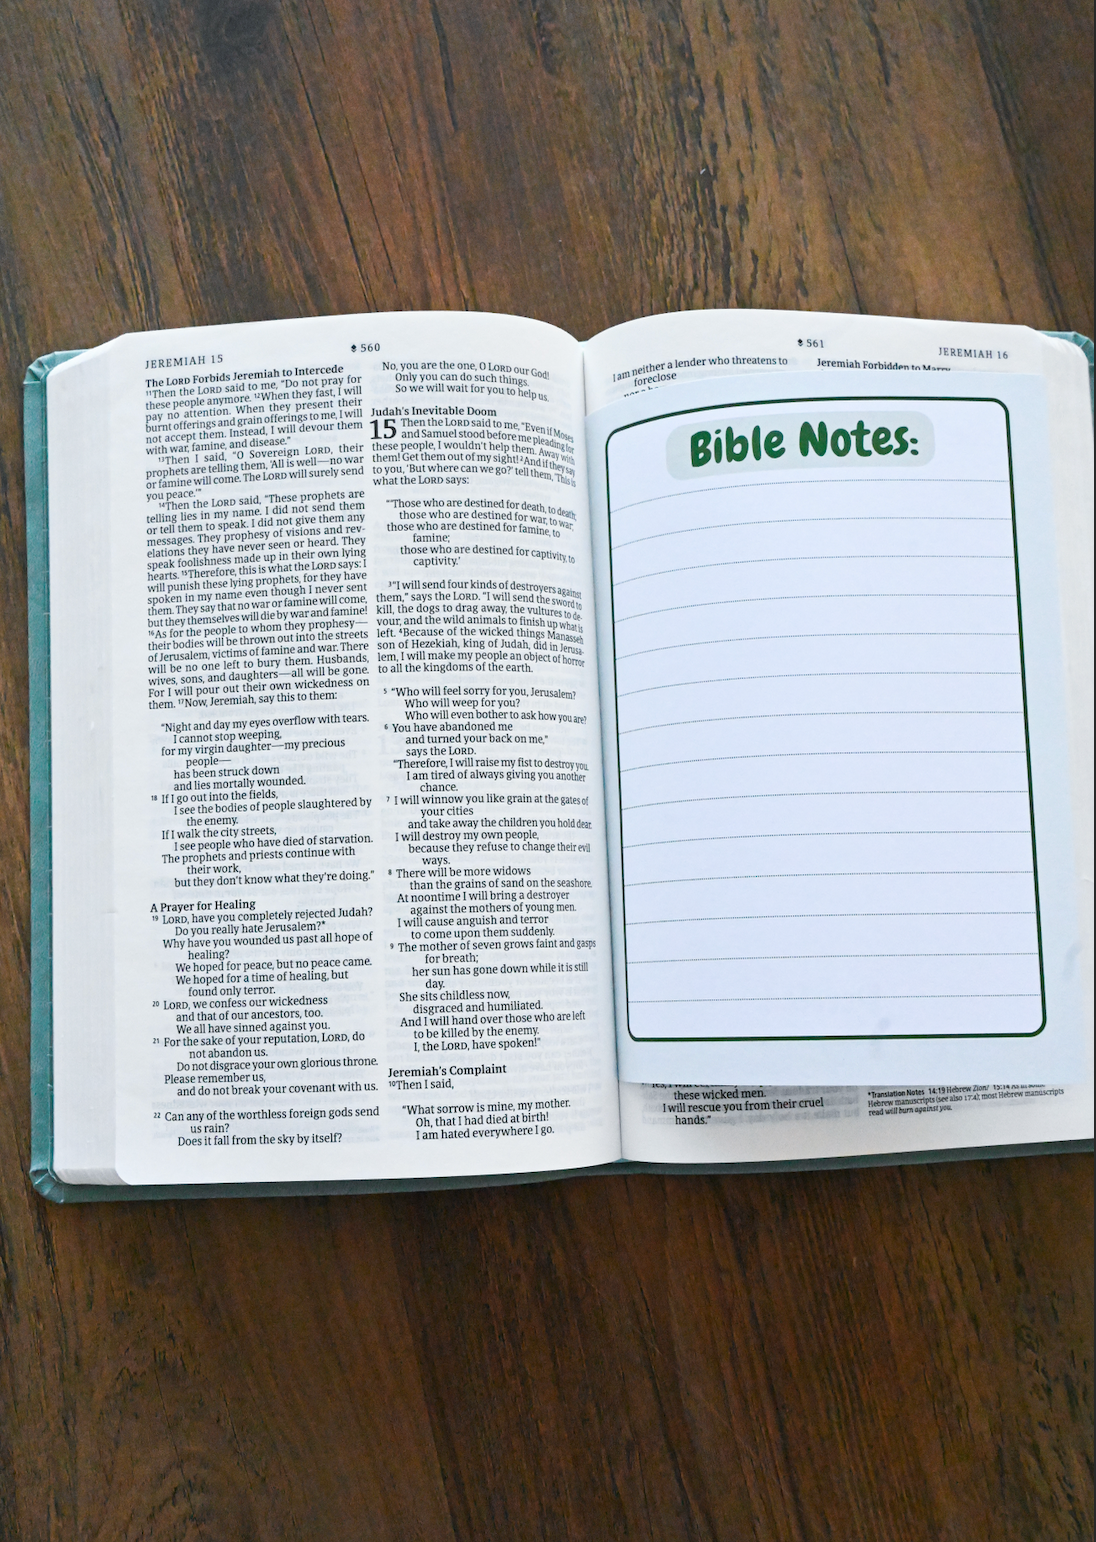 JEREMIAH 15
560
The LORD Forbids Jeremiah to Intercede
11Then the LORD said to me, “Do not pray for
these people anymore. 12When they fast, I will
pay no attention. When they present their
burnt offerings and grain offerings to me, I will
not accept them. Instead, I will devour them
with war, famine, and disease.”
13Then I said, “O Sovereign LORD, their
prophets are telling them, ‘All is well—no war
or famine will come. The LORD will surely send
you peace.’”
14Then the LORD said, “These prophets are
telling lies in my name. I did not send them
or tell them to speak. I did not give them any
messages. They prophesy of visions and rev-
elations they have never seen or heard. They
speak foolishness made up in their own lying
hearts. 15Therefore, this is what the LORD says: I
will punish these lying prophets, for they have
spoken in my name even though I never sent
them. They say that no war or famine will come,
but they themselves will die by war and famine!
16As for the people to whom they prophesy—
their bodies will be thrown out into the streets
of Jerusalem, victims of famine and war. There
will be no one left to bury them. Husbands,
wives, sons, and daughters—all will be gone.
For I will pour out their own wickedness on
them. 17Now, Jeremiah, say this to them:
“Night and day my eyes overflow with tears.
I cannot stop weeping,
for my virgin daughter—my precious
people—
has been struck down
and lies mortally wounded.
18 If I go out into the fields,
I see the bodies of people slaughtered by
the enemy.
If I walk the city streets,
I see people who have died of starvation.
The prophets and priests continue with
their work,
but they don’t know what they’re doing.”
A Prayer for Healing
19 LORD, have you completely rejected Judah?
Do you really hate Jerusalem?*
Why have you wounded us past all hope of
healing?
We hoped for peace, but no peace came.
We hoped for a time of healing, but
found only terror.
20 LORD, we confess our wickedness
and that of our ancestors, too.
We all have sinned against you.
21 For the sake of your reputation, LORD, do
not abandon us.
Do not disgrace your own glorious throne.
Please remember us,
and do not break your covenant with us.
22 Can any of the worthless foreign gods send
us rain?
Does it fall from the sky by itself?
No, you are the one, O LORD our God!
Only you can do such things.
So we will wait for you to help us.
Judah’s Inevitable Doom
15 Then the LORD said to me, “Even if Moses
and Samuel stood before me pleading for
these people, I wouldn’t help them. Away with
them! Get them out of my sight! 2And if they say
to you, ‘But where can we go?’ tell them, ‘This is
what the LORD says:
“‘Those who are destined for death, to death;
those who are destined for war, to war;
those who are destined for famine, to
famine;
those who are destined for captivity, to
captivity.’
3“I will send four kinds of destroyers against
them,” says the LORD. “I will send the sword to
kill, the dogs to drag away, the vultures to de-
vour, and the wild animals to finish up what is
left. 4Because of the wicked things Manasseh
son of Hezekiah, king of Judah, did in Jerusa-
lem, I will make my people an object of horror
to all the kingdoms of the earth.
5 “Who will feel sorry for you, Jerusalem?
Who will weep for you?
Who will even bother to ask how you are?
6 You have abandoned me
and turned your back on me,”
says the LORD.
“Therefore, I will raise my fist to destroy you.
I am tired of always giving you another
chance.
7 I will winnow you like grain at the gates of
your cities
and take away the children you hold dear.
I will destroy my own people,
because they refuse to change their evil
ways.
8 There will be more widows
than the grains of sand on the seashore.
At noontime I will bring a destroyer
against the mothers of young men.
I will cause anguish and terror
to come upon them suddenly.
9 The mother of seven grows faint and gasps
for breath;
her sun has gone down while it is still
day.
She sits childless now,
disgraced and humiliated.
And I will hand over those who are left
to be killed by the enemy.
I, the LORD, have spoken!”
Jeremiah’s Complaint
10Then I said,
“What sorrow is mine, my mother.
Oh, that I had died at birth!
I am hated everywhere I go.
561
JEREMIAH 16
I am neither a lender who threatens to
foreclose
Jeremiah Forbidden to Marry
Bible Notes:
these wicked men.
I will rescue you from their cruel
hands.”
*Translation Notes 14:19 Hebrew Zion? 15:14 As in some
Hebrew manuscripts (see also 17:4); most Hebrew manuscripts
read will burn against you.